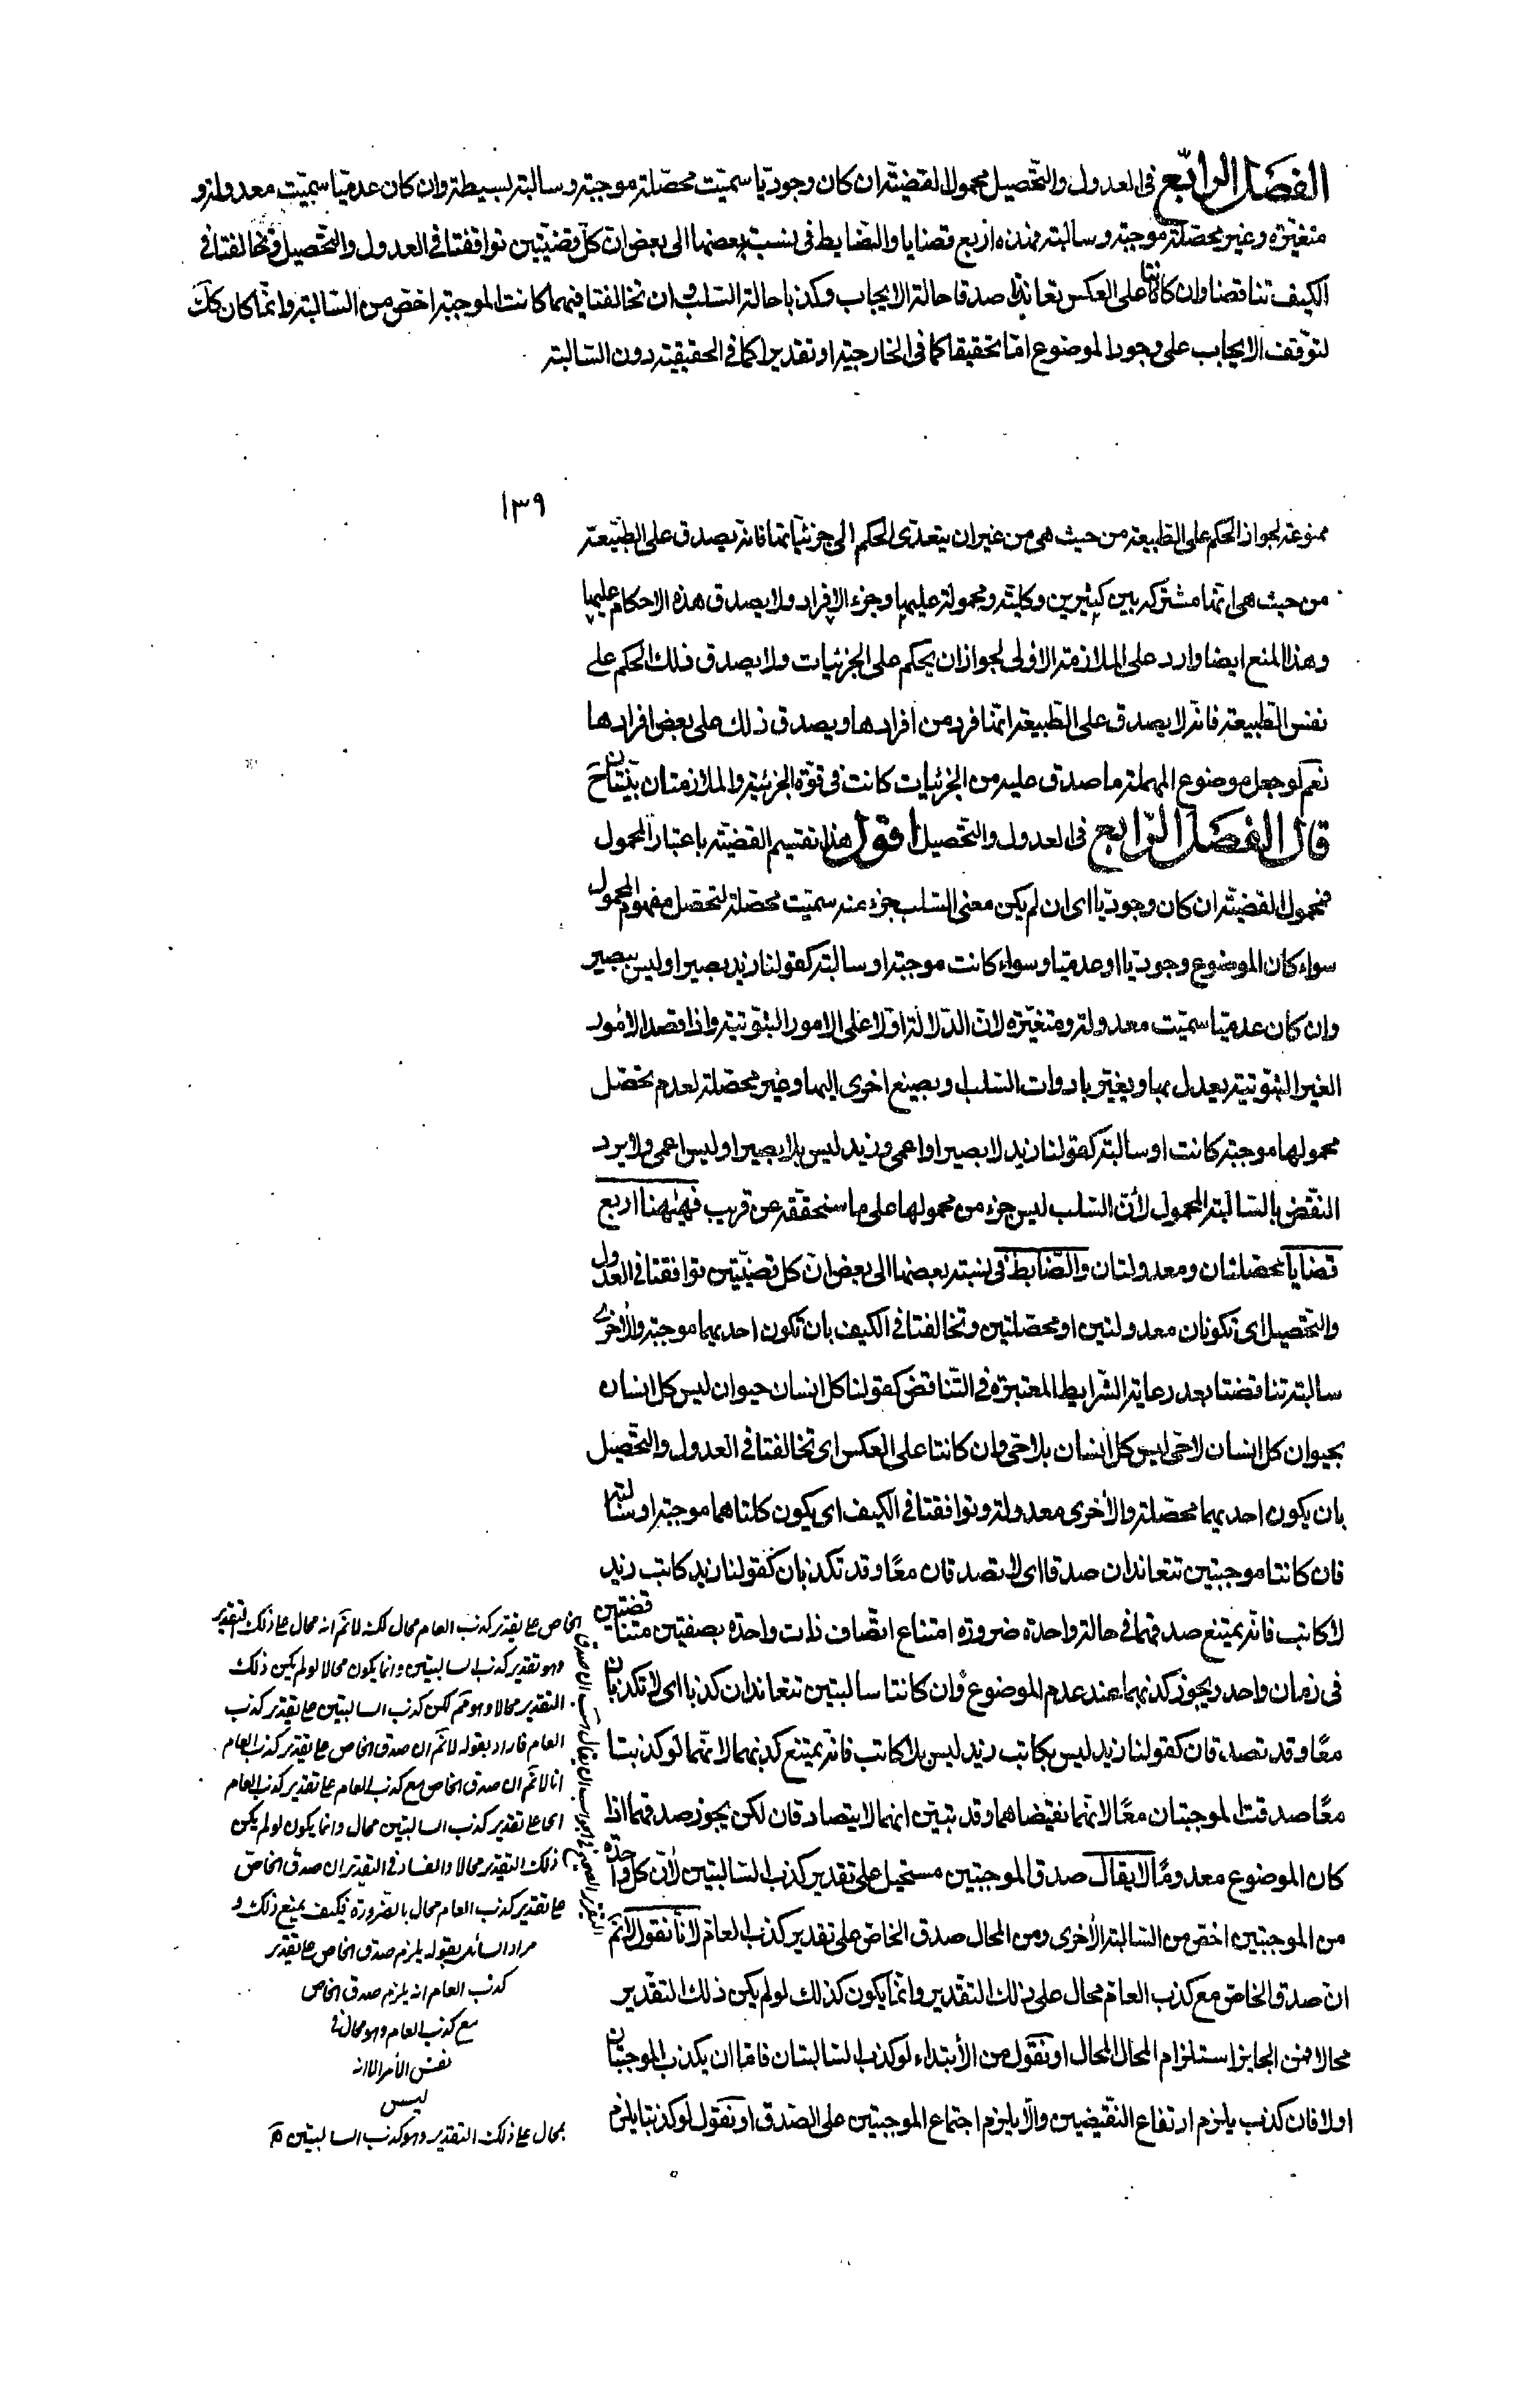 الفصل الرابع في العدول والتحصيل محمول القضية ان كان وجوديا سميت محصلة موجبة وسالبة بسيطة وان كان عدميا سميت معدولة و
متغيرة وغير محصلة موجبة وسالبة فهذه اربع قضايا والضابط في نسبة بعضها الى بعض ان كل قضيتين توافقتا في العدول والتحصيل وتخالفتا في
الكيف تناقضتا وان كانتا على العكس تعاندتا صدقا حالة الايجاب وكذبا حالة السلب وان تخالفتا فيهما كانت الموجبة اخص من السالبة وانما كان كك
لتوقف الايجاب على وجود الموضوع اما تحقيقا كما في الخارجية او تقديرا كما في الحقيقية دون السالبة
١٣٩
ممنوعة لجواز الحكم على الطبيعة من حيث هي من غير ان يتعدى الحكم الى جزئياتها فانه يصدق على الطبيعة
من حيث هي انها مشتركة بين كثيرين وكلية ومحمولة عليها وجزء الافراد ولا يصدق هذه الاحكام عليها
وهذا المنع ايضا وارد على الملازمة الاولى لجواز ان يحكم على الجزئيات ولا يصدق ذلك الحكم على
نفس الطبيعة فانه لا يصدق على الطبيعة انها فرد من افرادها ويصدق ذلك على بعض افرادها
نعم لو جعل موضوع المهملة ما صدق عليه من الجزئيات كانت في قوة الجزئية والملازمتان بينتان ح
قال الفصل الرابع في العدول والتحصيل اقول هذا تقسيم القضية باعتبار المحمول
فمحمول القضية ان كان وجوديا اى ان لم يكن معنى السلب جزء عنه سميت محصلة لتحصل مفهوم المحمول
سواء كان الموضوع وجوديا او عدميا وسواء كانت موجبة او سالبة كقولنا زيد بصير او ليس ببصير
وان كان عدميا سميت معدولة ومتغيرة لان الدلالة اولا على الامور الثبوتية واذا قصد الامور
الغير الثبوتية يعدل بها ويغير بادوات السلب وبصيغ اخرى اليها وغير محصلة لعدم تحصل
محمولها موجبة كانت او سالبة كقولنا زيد لا بصير او اعمى وزيد ليس بلا بصير او ليس اعمى ولا يرد
النقض بالسالبة المحمول لأن السلب ليس جزء من محمولها على ما سنحققه عن قريب فهيهنا اربع
قضايا محصلتان ومعدولتان والضابط في نسبة بعضها الى بعض ان كل قضيتين توافقتا في العدول
والتحصيل اى تكونان معدولتين او محصلتين وتخالفتا في الكيف بان تكون احديهما موجبة والأخرى
سالبة تناقضتا بعد رعاية الشرايط المعتبرة في التناقض كقولنا كل انسان حيوان ليس كل انسان
بحيوان كل انسان لا حى ليس كل انسان بلا حى وان كانتا على العكس اى تخالفتا في العدول والتحصيل
بان يكون احديهما محصلة والأخرى معدولة وتوافقتا في الكيف اى يكون كلتاهما موجبة او سالبة
فان كانتا موجبتين تتعاندان صدقا اى لا تصدقان معًا وقد تكذبان كقولنا زيد كاتب زيد
لا كاتب فانه يمتنع صدقهما في حالة واحدة ضرورة امتناع اتصاف ذات واحدة بصفتين متناقضتين
في زمان واحد ويجوز كذبهما عند عدم الموضوع وان كانتا سالبتين تتعاندان كذبا اى لا تكذبان
معًا وقد تصدقان كقولنا زيد ليس بكاتب زيد ليس بلا كاتب فانه يمتنع كذبهما لانهما لو كذبتا
معًا صدقت الموجبتان معًا لانهما نقيضاهما وقد تبين انهما لا يتصادقان لكن يجوز صدقهما اذا
كان الموضوع معدومًا لا يقال صدق الموجبتين مستحيل على تقدير كذب السالبتين لأن كل واحدة
من الموجبتين اخص من السالبة الأخرى ومن المحال صدق الخاص على تقدير كذب العام لأنا نقول لانم
ان صدق الخاص مع كذب العام محال على ذلك التقدير وانما يكون كذلك لو لم يكن ذلك التقدير
محالا فمن الجايز استلزام المحال المحال او نقول من الأبتداء لو كذب السالبتان فاما ان يكذب الموجبتان
او لا فان كذب يلزم ارتفاع النقيضين والا يلزم اجتماع الموجبتين على الصدق او نقول لو كذبتا يلزم
الخاص على تقدير كذب العام محال لكنه لانم انه محال على ذلك التقدير
وهو تقدير كذب السالبتين وانما يكون محالا لو لم يكن ذلك
التقدير محالا وهو مم لكن كذب السالبتين على تقدير كذب
العام فاراد بقوله لانم ان صدق الخاص على تقدير كذب العام
انا لانم ان صدق الخاص مع كذب العام على تقدير كذب العام
اى على تقدير كذب السالبتين محال وانما يكون لو لم يكن
ذلك التقدير محالا والفساد في التقدير ان صدق الخاص
على تقدير كذب العام محال بالضرورة فكيف يمنع ذلك و
مراد السائل بقوله يلزم صدق الخاص على تقدير
كذب العام انه يلزم صدق الخاص
مع كذب العام وهو محال في
نفس الأمر الا انه
ليس
بمحال على ذلك التقدير وهو كذب السالبتين